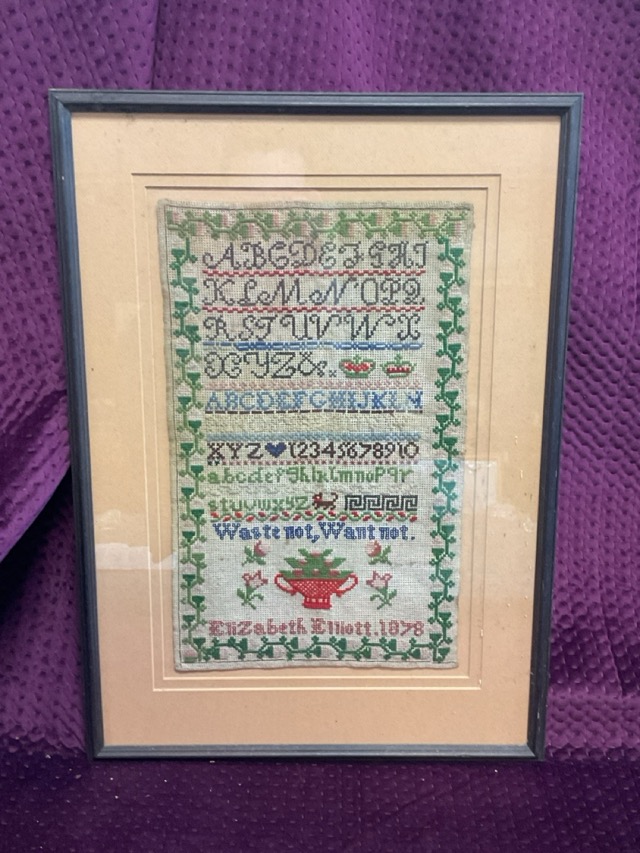 ABCDEFGHI
KLMNOPQ
RSTUVWX
XYZ&
ABCDEFGHIJKLN
XYZ 12345678910
abcdefghiklmnopqr
stuvwxyz
Waste not, Want not.
Elizabeth Elliott. 1878